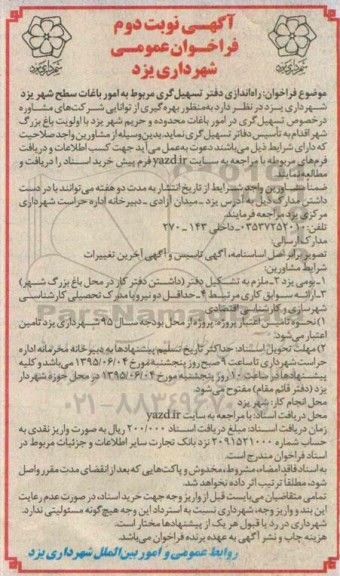 آگهی نوبت دوم
فراخوان عمومی
شهرداری یزد
موضوع فراخوان: راه‌اندازی دفتر تسهیل‌گری مربوط به امور باغات سطح شهر یزد
شهرداری یزد در نظر دارد به‌منظور بهره‌گیری از توانایی شرکت‌های مشاوره
در خصوص تسهیل‌گری در امور باغات محدوده و حریم شهر یزد با اولویت باغ بزرگ
شهر اقدام به تأسیس دفاتر تسهیل‌گری نماید. بدین‌وسیله از مشاورین واجد صلاحیت
که دارای شرایط ذیل می‌باشند دعوت به‌عمل می‌آید جهت کسب اطلاعات و دریافت
فرم‌های مربوطه با مراجعه به سایت yazd.ir فرم پیش خرید اسناد را دریافت و
مطالعه نمایند.
ضمناً مشاورین واجد شرایط از تاریخ انتشار به مدت دو هفته می‌توانند با در دست
داشتن مدارک ذیل به آدرس یزد - میدان آزادی - دبیرخانه اداره حراست شهرداری
مرکزی یزد مراجعه فرمایند.
تلفن: ۰۳۵۳۷۲۵۲۰۱۰ - داخلی ۱۴۳ - ۲۷۰
مدارک ارسالی:
تصویر برابر اصل اساسنامه، آگهی تاسیس و آگهی آخرین تغییرات
شرایط مشاورین:
۱- بومی یزد ۲- ملزم به تشکیل دفتر (داشتن دفتر کار در محل باغ بزرگ شهر)
۳- ارائه سوابق کاری مرتبط ۴- حداقل دو نیرو با مدرک تحصیلی کارشناسی
شهرسازی و کارشناسی اقتصادی
۱) نحوه تامین اعتبار پروژه: پروژه از محل بودجه سال ۹۵ شهرداری یزد تامین
اعتبار می‌شود.
۲) مهلت تحویل اسناد: حداکثر تاریخ تسلیم پیشنهادها به دبیرخانه محرمانه اداره
حراست شهرداری تا ساعت ۹ صبح روز پنجشنبه مورخ ۱۳۹۵/۰۶/۰۴ می‌باشد و کلیه
پیشنهادها در ساعت ۱۰ روز پنجشنبه مورخ ۱۳۹۵/۰۶/۰۴ در محل حوزه شهردار
یزد (دفتر قائم مقام) مفتوح می‌شود.
محل انجام کار: شهر یزد
محل دریافت اسناد: با مراجعه به سایت yazd.ir
زمان دریافت اسناد: مبلغ دریافت اسناد ۲۰۰/۰۰۰ ریال به صورت واریز نقدی به
حساب شماره ۲۰۹۱۵۲۱۰۰۰ نزد بانک تجارت سایر اطلاعات و جزئیات مربوط در
اسناد فراخوان مندرج است.
به اسناد فاقد امضاء، مشروط، مخدوش و پاکت‌هایی که بعد از انقضای مدت مقرر واصل
شود، مطلقاً ترتیب اثر داده نخواهد شد.
تمامی متقاضیان می‌بایست قبل از واریز وجه جهت خرید اسناد، در صورت عدم رعایت
این بند و واریز وجه، شهرداری نسبت به استرداد این وجه هیچ‌گونه مسئولیتی ندارد.
شهرداری در رد یا قبول هر یک از پیشنهادها مختار است.
هزینه چاپ و نشر آگهی به عهده برنده فراخوان می‌باشد.
روابط عمومی و امور بین‌الملل شهرداری یزد